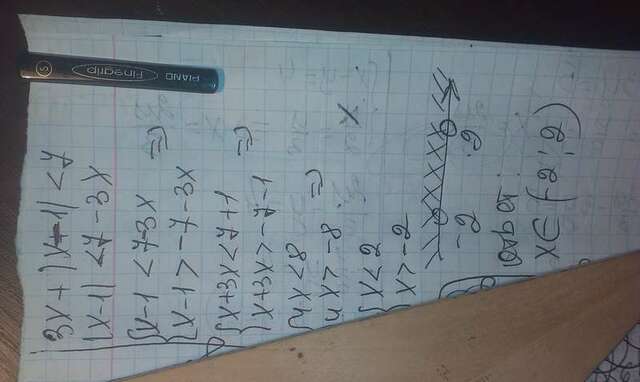 3x + |x-1| < 7
|x-1| < 7-3x
{x-1 < 7-3x
{x-1 > -7-3x =>
{x+3x < 7+1
{x+3x > -7-1 =>
{4x < 8
{4x > -8 =>
{x < 2
{x > -2
-2 2 x
x ∈ (-2, 2)
PIANO
Finegrip
S